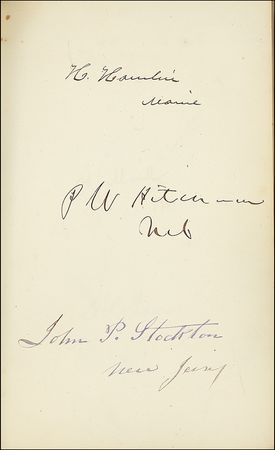 H. Hamlin
Maine
P W Hitchcock
Neb
John P. Stockton
New Jersey